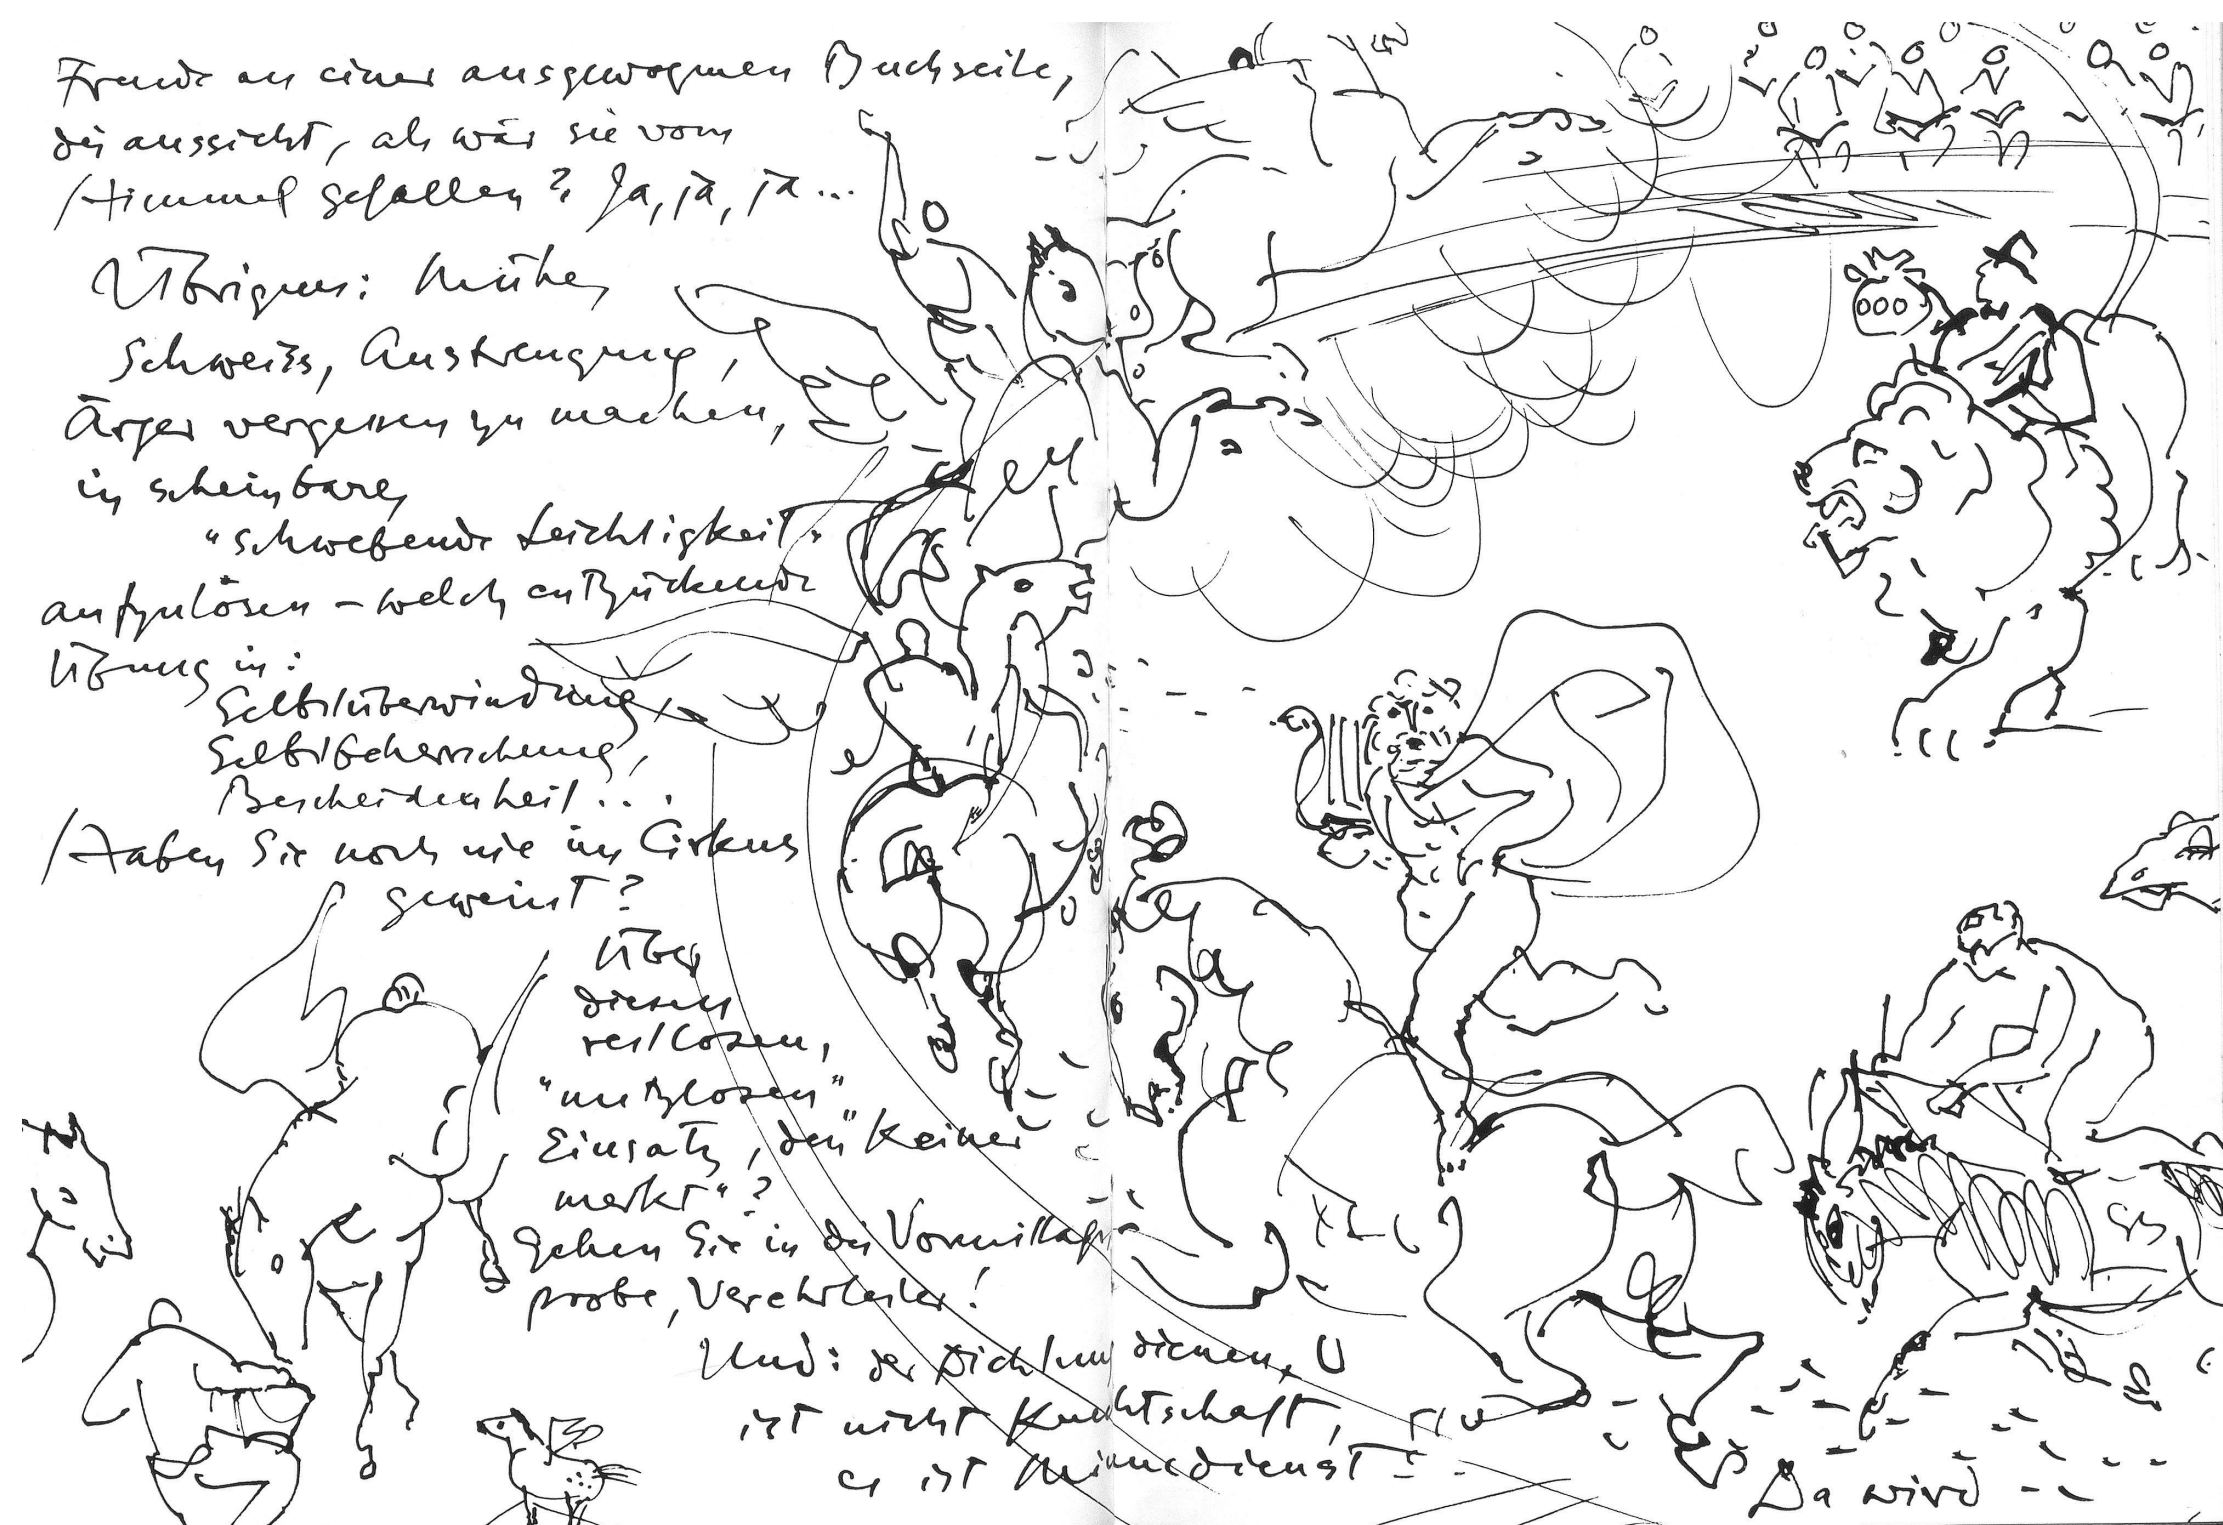 Freude an einer ausgewogenen Buchseite,
die aussieht, als wär sie vom
Himmel gefallen? Ja, ja, ja...
Übrigens: Mühe,
Schweiss, Anstrengung,
Ärger vergessen zu machen,
in scheinbare
"schwebende Leichtigkeit"
aufzulösen – welch entzückende
Übung in:
Selbstüberwindung,
Selbstbeherrschung,
Bescheidenheit...
Haben Sie noch nie im Cirkus
geweint?
Über
diesen
restlosen,
"nutzlosen"
Einsatz, den "keiner
merkt"?
Gehen Sie in die Vormittags
probe, Verehrtester!
Und: der Dichtung dienen,
ist nicht Knechtschaft,
es ist Minnedienst!
Da wird --